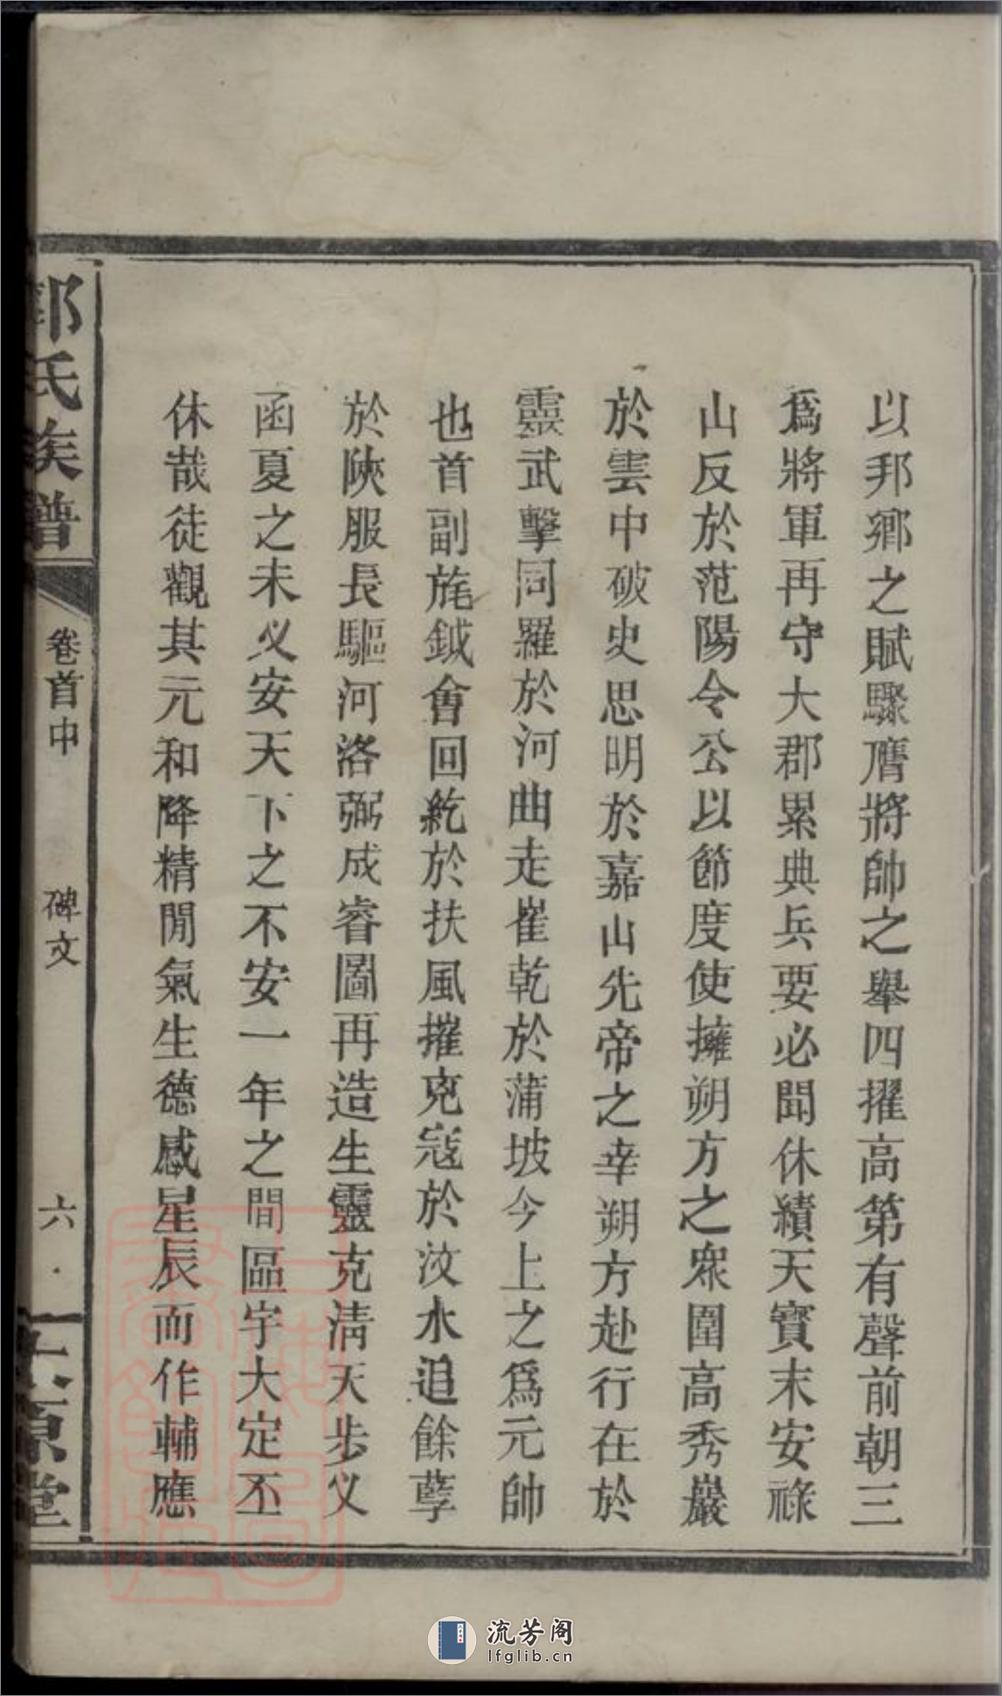 以邦鄉之賦驟膺將帥之舉四擢高第有聲前朝三
爲將軍再守大郡累典兵要必聞休績天寳末安祿
山反於范陽令公以節度使擁朔方之衆圍高秀巖
於雲中破史思明於嘉山先帝之幸朔方赴行在於
靈武擊同羅於河曲走崔乾於蒲坡今上之爲元帥
也首副旄鉞會回紇於扶風摧兇寇於汶水追餘孽
於陝服長驅河洛弼成睿圖再造生靈克淸天步乂
函夏之未乂安天下之不安一年之間區宇大定丕
休哉徒觀其元和降精閒氣生德感星辰而作輔應
郭氏族譜
卷首中
碑文
六
太原堂
流芳阁
lfglib.cn